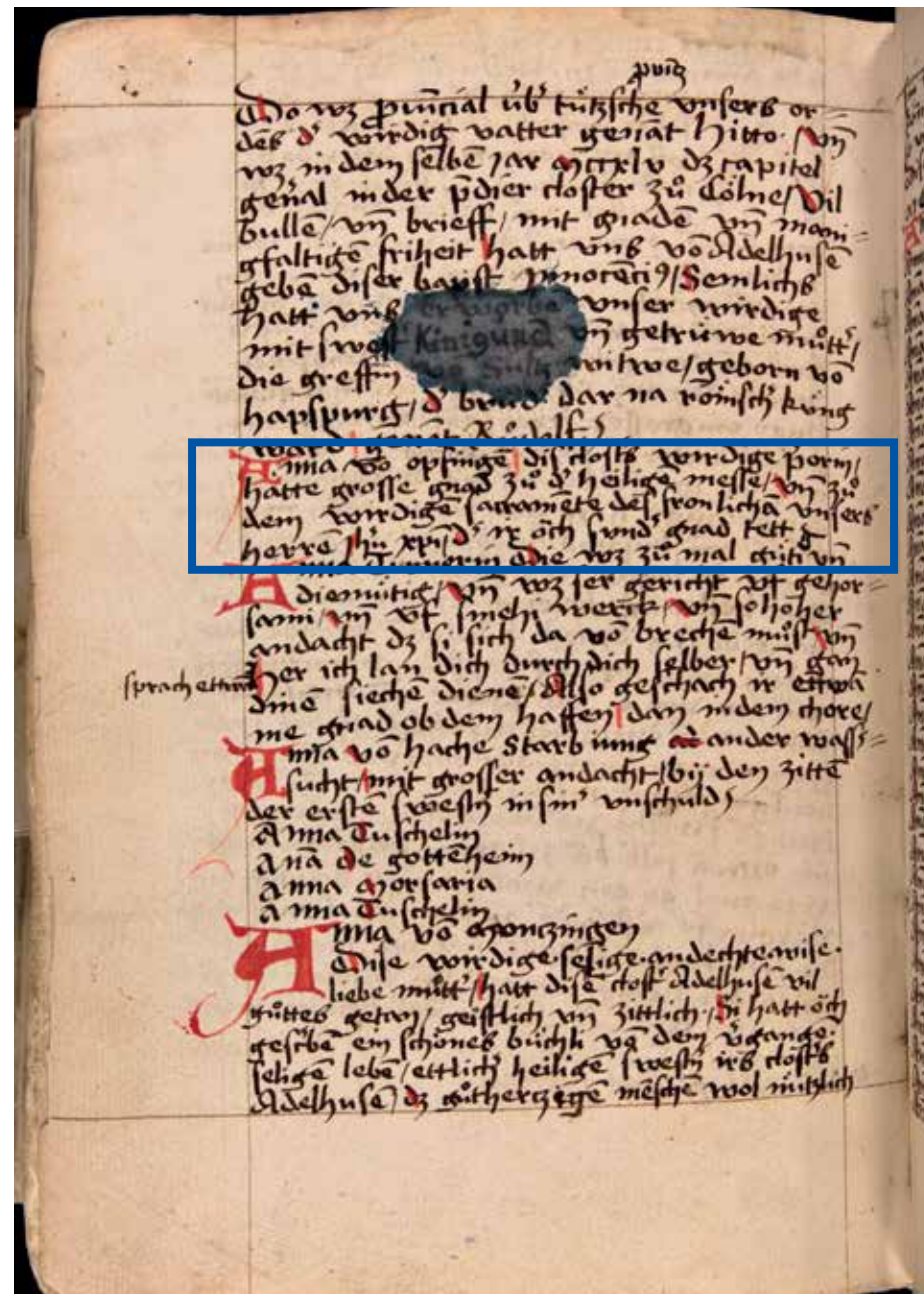 prūīcꝫ
Do wz ꝓuincial úb' tútzsche vnsers or=
dēs d' wirdig vatter genāt hitto · vn̄
wz in dem selbē jar mccxlv dz capitel
gen'al in der p̄dier closter zů Cölne / Vil
bullē / vn̄ brieff / mit gnadē vn̄ mani=
gfaltigē friheit hatt vns vō Adelhusē
gebē diser bapst Jnnocēciꝰ / Semlichs
hatt vns erworbē vnser wirdige
mit swest' Kúnigund vn̄ getrúwe můtt' /
die greffin vō Sultz witwe / geborn vō
hapspurg / d' brůd' dar na römisch' kúng
ward / genāt Růdolf
Anna vō opfingē dis closts wirdige ꝓorin /
hatte grosse gnad zů d' heiligē messe / vn̄ zů
dem wirdigē sacramēte des fronlichā vnsers
herrē jhū xp̄i / d' ir öch sund' gnad tett
Anna Turnerin Die wz zů mal gúti vn̄
diemútig / vn̄ wz ser gericht vf gehor=
sami / vn̄ vf smehi werck / vn̄ so hoher
andacht dz si sich da vō brechē můst vn̄
sprach ettwā
her ich lan dich durch dich selber / vn̄ gan
dinē siechē dienē / Also geschach ir ettwā
me gnad ob dem haffen / dan in dem chore /
Anna vō hache Starb iung an der wass'=
sucht / mit grosser andacht / bij den zittē
der erstē swestn̄ in sin' vnschuld
Anna Tuschelin
Anā de gottēheim
Anna Morsaria
Anna Tuschelin
Anna vō Montzingen
Dise wirdige · selige · andechte · wise ·
liebe můtt' / hatt disē clost' Adelhusē vil
gůttes getan / geistlich vn̄ zittlich · Si hatt öch
gesc'bē ein schönes búchli vō dem v'gange ·
seligē lebē / ettlich' heiligē swestn̄ irs closts
Adelhusē dz gůthertzigē mēschē wol nútzlich